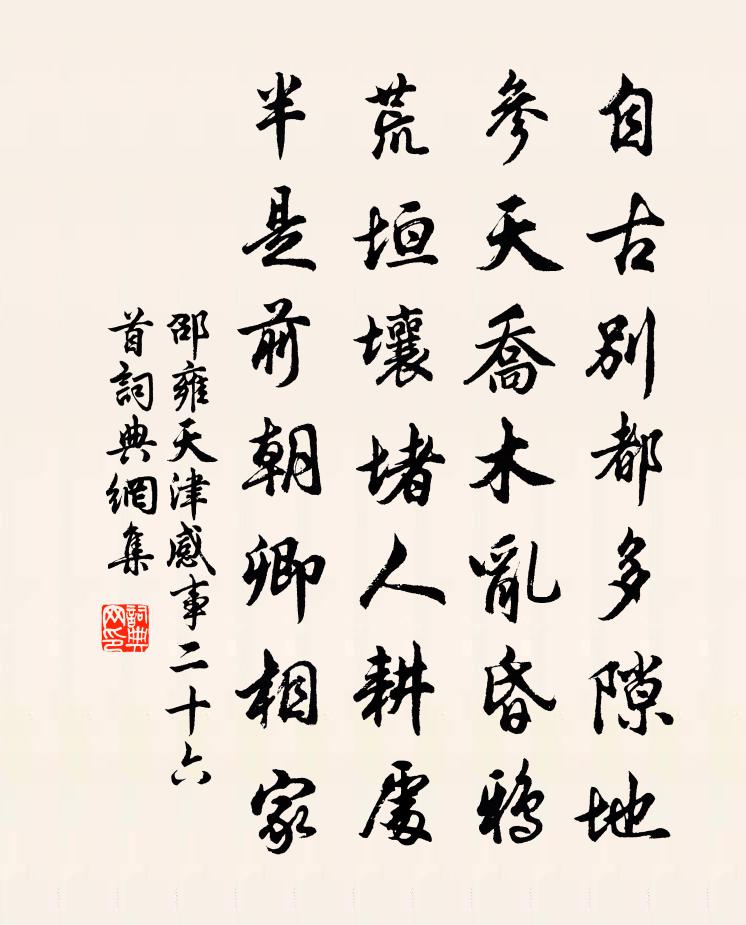 自古別都多隙地
參天喬木亂昏鴉
荒垣壞堵人耕處
半是前朝卿相家
邵雍天津感事二十六
首詞典網集
詞典网印